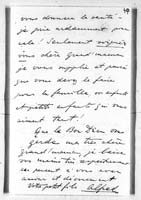 49
vous donner la santé -
je prie ardemment pour
cela! Seulement soignez
vous chère Grand'maman,
je vous supplie et parce
que vous devez le faire
pour la famille, vos enfants
et petits enfants qui vous
aiment tant!
Que le Bon Dieu vous
garde ma très chère
grand'maman, je baise
vos mains très respectueuse
ment et vous
avance et dévouement
Votre petit fils Alfred